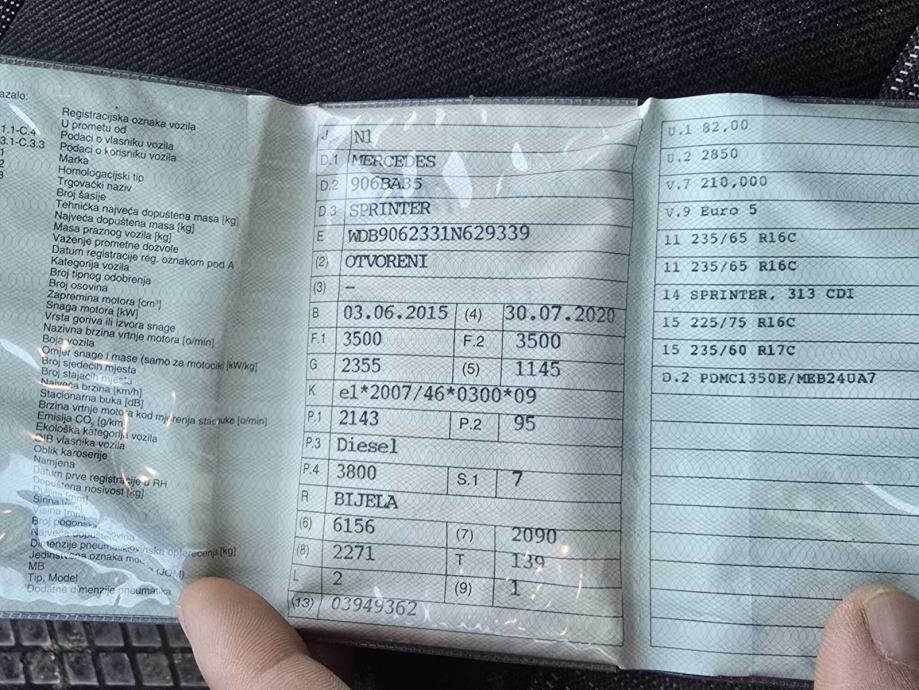 azalo:
Registracijska oznaka vozila
U prometu od
1.1-C.4 Podaci o vlasniku vozila
3.1-C.3.3 Podaci o korisniku vozila
Marka
Homologacijski tip
Trgovački naziv
Broj šasije
Tehnička najveća dopuštena masa [kg]
Najveća dopuštena masa [kg]
Masa praznog vozila [kg]
Važenje prometne dozvole
Datum registracije reg. oznakom pod A
Kategorija vozila
Broj tipnog odobrenja
Broj osovina
Zapremina motora [cm³]
Snaga motora [kW]
Vrsta goriva ili izvora snage
Nazivna brzina vrtnje motora [o/min]
Boja vozila
Omjer snage i mase (samo za motocikl) [kW/kg]
Broj sjedećih mjesta
Broj stajaćih mjesta
Najveća brzina [km/h]
Stacionarna buka [dB]
Brzina vrtnje motora kod mjerenja stac. buke [o/min]
Emisija CO₂ [g/km]
Ekološka kategorija vozila
OIB vlasnika vozila
Oblik karoserije
Namjena
Datum prve registracije u RH
Dopuštena nosivost [kg]
Širina
Visina [mm]
Broj pogonskih
Najveća
Jedinstvena oznaka
MB
Tip, Model
Dodatne dimenzije pneumatika
J N1
D.1 MERCEDES
D.2 906BA35
D.3 SPRINTER
E WDB9062331N629339
(2) OTVORENI
(3) –
B 03.06.2015 (4) 30.07.2020
F.1 3500 F.2 3500
G 2355 (5) 1145
K e1*2007/46*0300*09
P.1 2143 P.2 95
P.3 Diesel
P.4 3800 S.1 7
R BIJELA
(6) 6156 (7) 2090
(8) 2271 T 139
L 2 (9) 1
(13) 03949362
U.1 82,00
U.2 2850
V.7 210,000
V.9 Euro 5
11 235/65 R16C
11 235/65 R16C
14 SPRINTER, 313 CDI
15 225/75 R16C
15 235/60 R17C
D.2 PDMC1350E/MEB24UA7